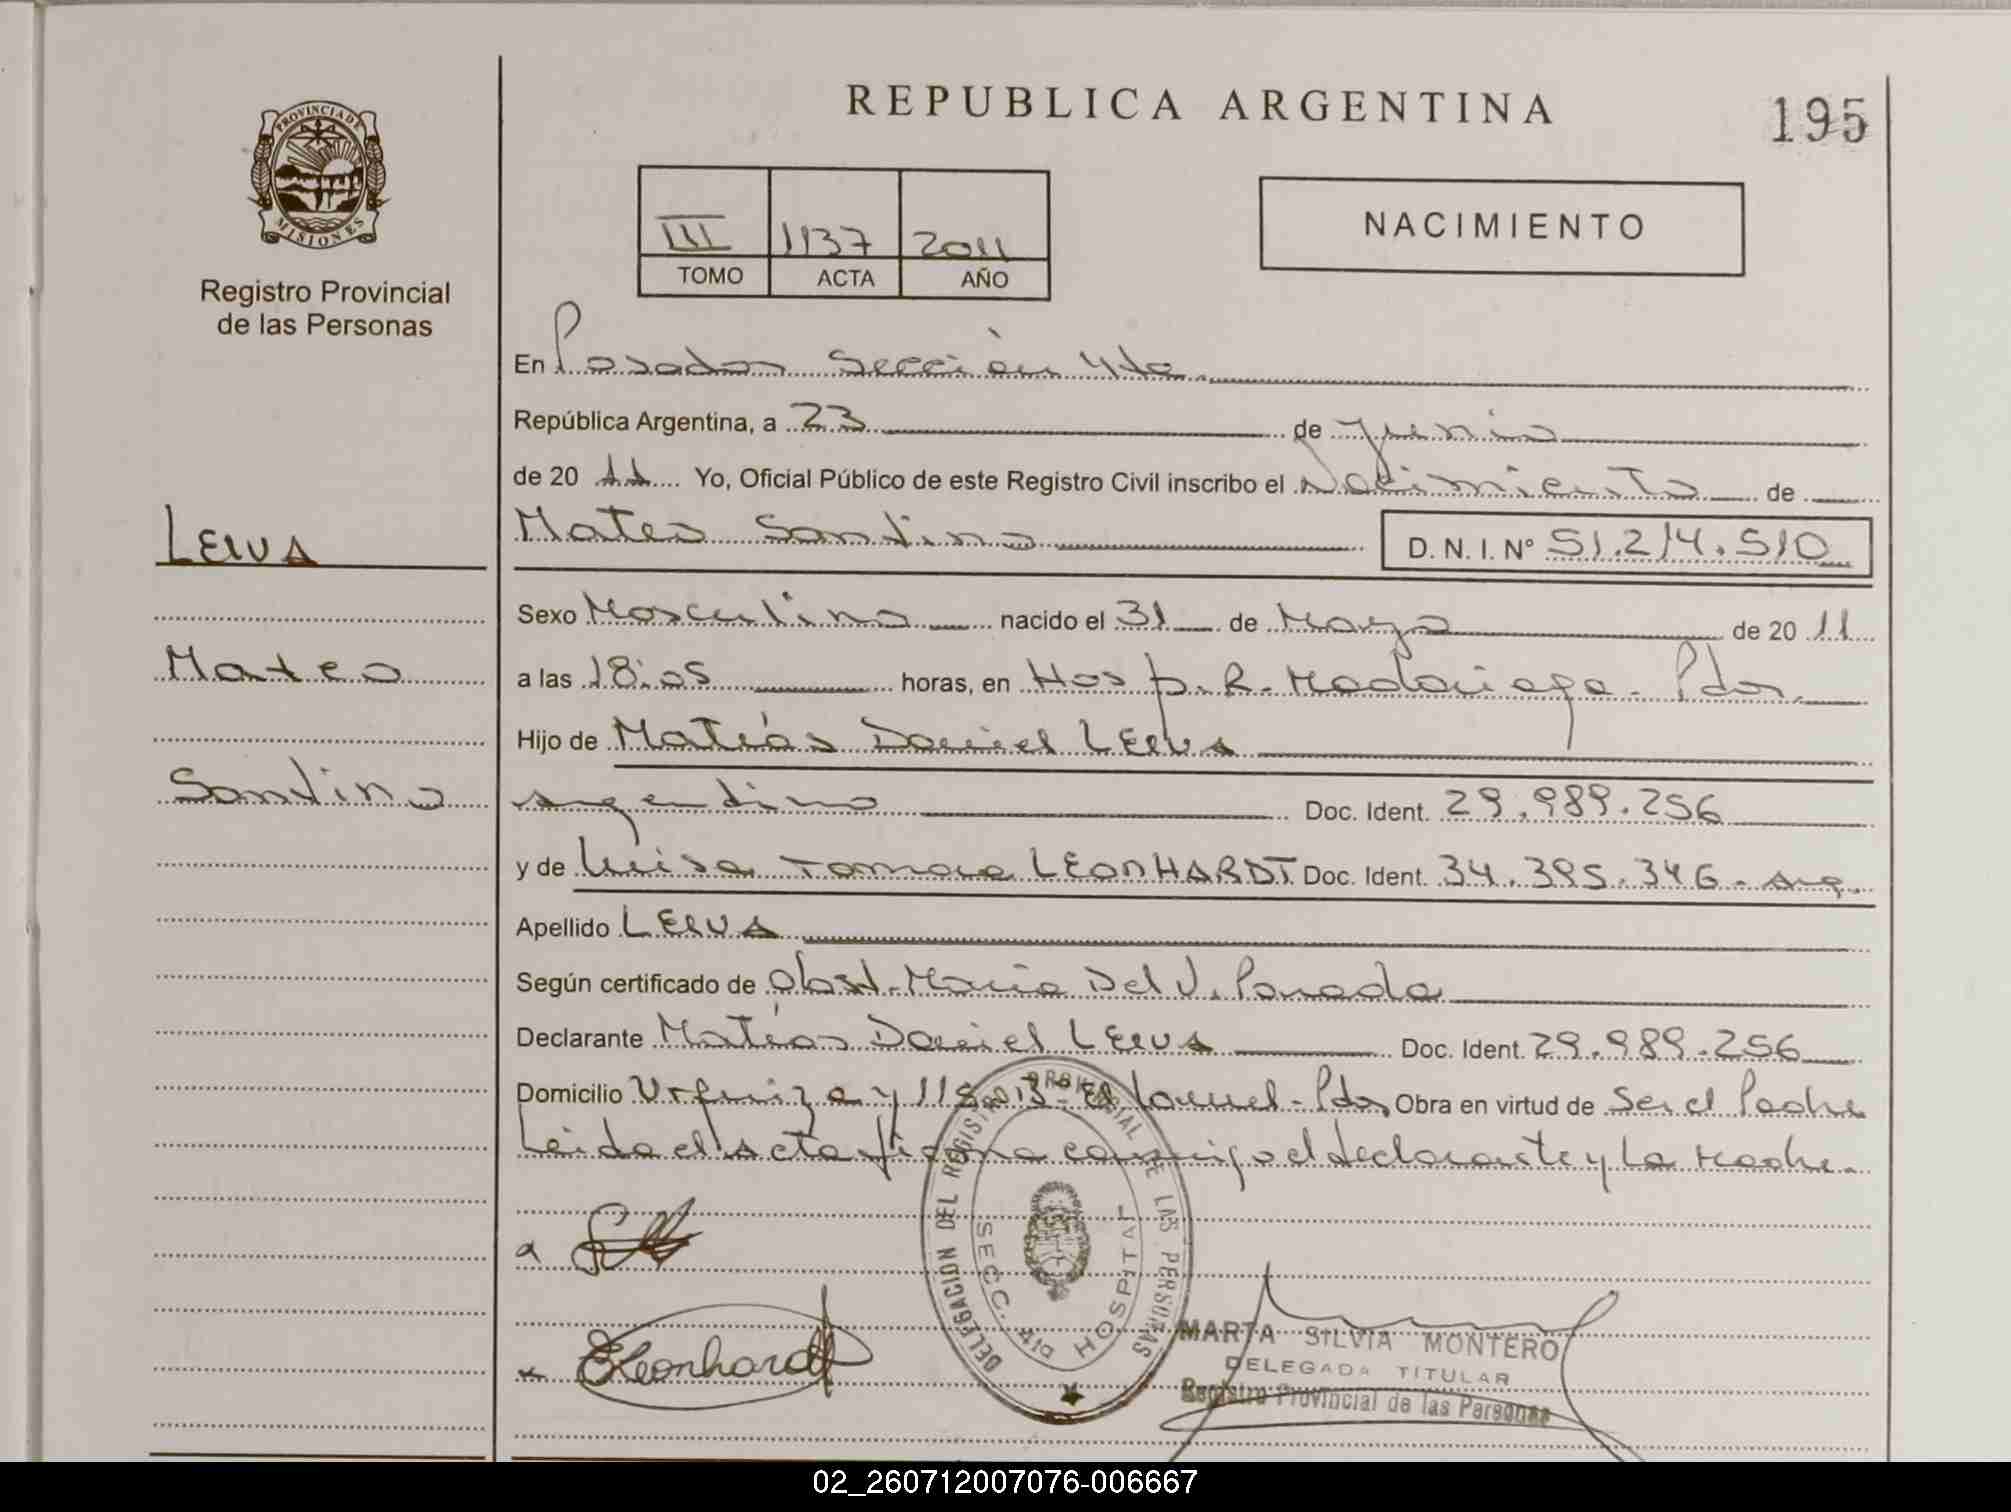 REPUBLICA ARGENTINA
195
PROVINCIA DE
MISIONES
Registro Provincial
de las Personas
III 1137 2011
TOMO ACTA AÑO
NACIMIENTO
En Posadas Sección 4ta.
República Argentina, a 23 de Junio
de 20 11 Yo, Oficial Público de este Registro Civil inscribo el Nacimiento de
LEIVA
Mateo Santino D. N. I. Nº 51.214.510
Sexo Masculino nacido el 31 de Mayo de 20 11
Mateo
a las 18:05 horas, en Hosp. R. Madariaga - Pdas.
Hijo de Matías Daniel LEIVA
Santino
argentino Doc. Ident. 29.989.256
y de Luisa Tamara LEONHARDT Doc. Ident. 34.395.346 - Arg.
Apellido LEIVA
Según certificado de Obst. María Del V. Parada
Declarante Matías Daniel LEIVA Doc. Ident. 29.989.256
Domicilio Urquiza y 115 Pdas Obra en virtud de Ser el Padre
Leida el acta firma conmigo el declarante y La Madre.
DELEGACION DEL REGISTRO PROVINCIAL DE LAS PERSONAS
SECC. 4ta HOSPITAL
Leonhardt
MARTA SILVIA MONTERO
DELEGADA TITULAR
Registro Provincial de las Personas
02_260712007076-006667